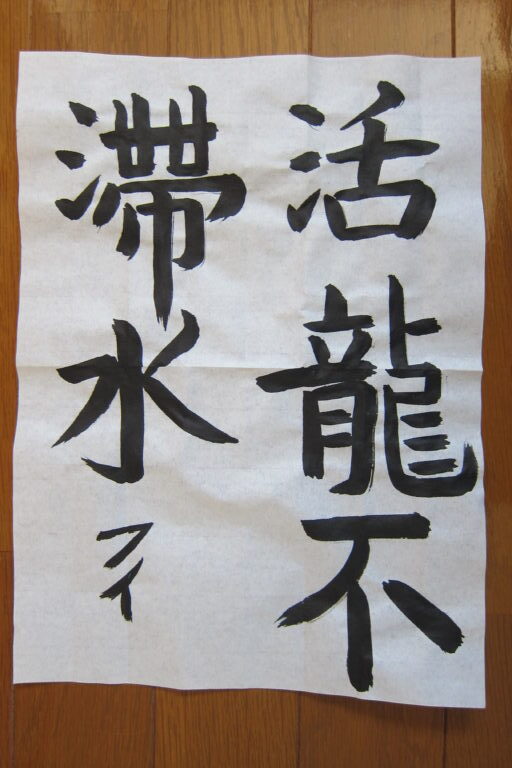 活龍不
滞水
アイ